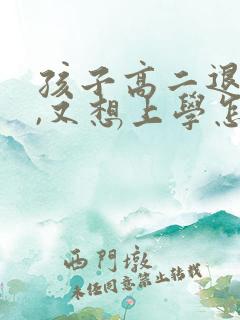 孩子高二退
,又想上學怎
西門墩
未经同意禁止转载